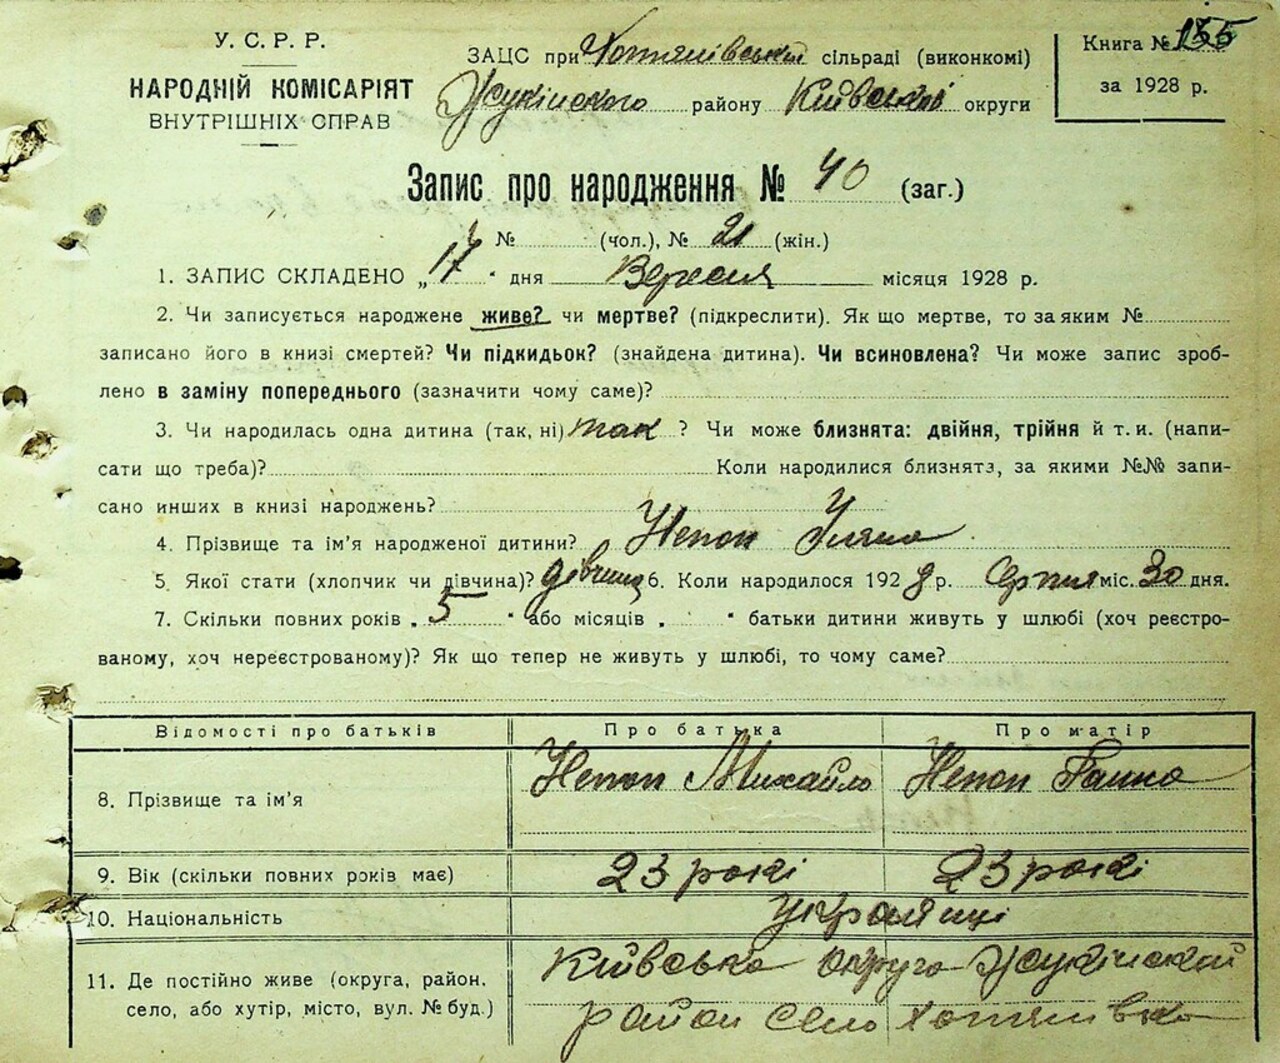 У. С. Р. Р.
НАРОДНІЙ КОМІСАРІЯТ
ВНУТРІШНІХ СПРАВ
ЗАЦС при Хотянівській сільраді (виконкомі)
Жукінского району Київської округи
Книга № 155
за 1928 р.
Запис про народження № 40 (заг.)
№ (чол.), № 21 (жін.)
1. ЗАПИС СКЛАДЕНО „17" дня Вересня місяця 1928 р.
2. Чи записується народжене живе? чи мертве? (підкреслити). Як що мертве, то за яким №
записано його в книзі смертей? Чи підкидьок? (знайдена дитина). Чи всиновлена? Чи може запис зроб-
лено в заміну попереднього (зазначити чому саме)?
3. Чи народилась одна дитина (так, ні) так ? Чи може близнята: двійня, трійня й т. и. (напи-
сати що треба)? Коли народилися близнята, за якими №№ запи-
сано инших в книзі народжень?
4. Прізвище та ім'я народженої дитини? Непоп Уляна
5. Якої стати (хлопчик чи дівчина)? дівчина 6. Коли народилося 1928 р. Серпня міс. 30 дня.
7. Скільки повних років „5" або місяців „ " батьки дитини живуть у шлюбі (хоч реєстро-
ваному, хоч нереєстрованому)? Як що тепер не живуть у шлюбі, то чому саме?
Відомості про батьків Про батька Про матір
8. Прізвище та ім'я Непоп Михайло Непоп Ганна
9. Вік (скільки повних років має) 23 рокі 23 рокі
10. Національність Українці
11. Де постійно живе (округа, район, село, або хутір, місто, вул. № буд.) Київська округа Жукінский
район село Хотянівка